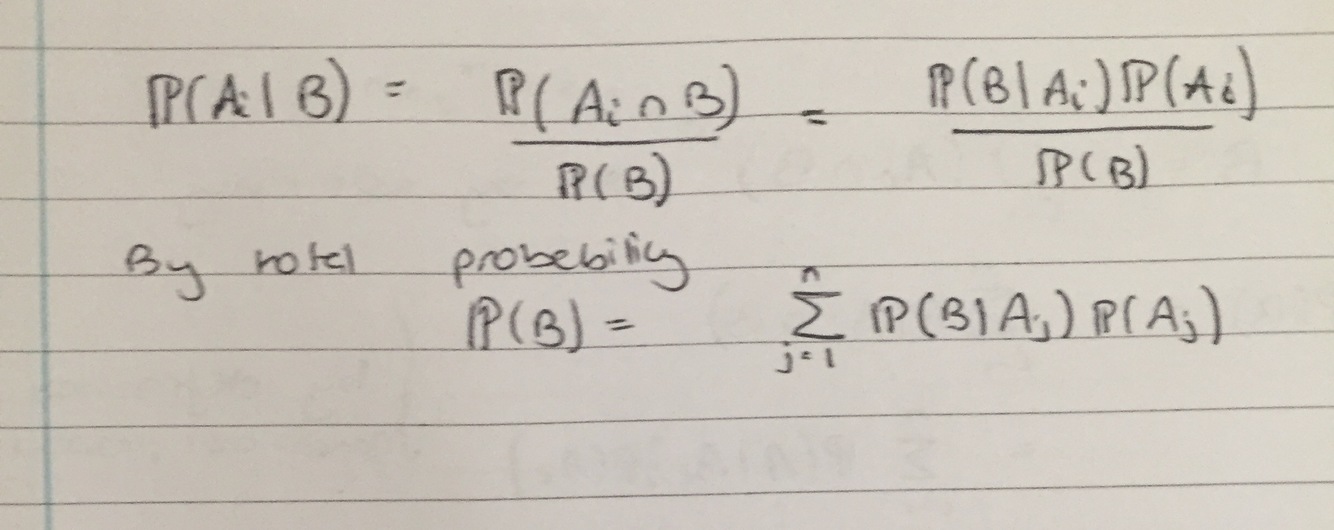 ℙ(Aᵢ | B) = ℙ(Aᵢ ∩ B) / ℙ(B) = ℙ(B | Aᵢ) ℙ(Aᵢ) / ℙ(B)
By total probability
ℙ(B) = ∑ⱼ₌₁ⁿ ℙ(B | Aⱼ) ℙ(Aⱼ)